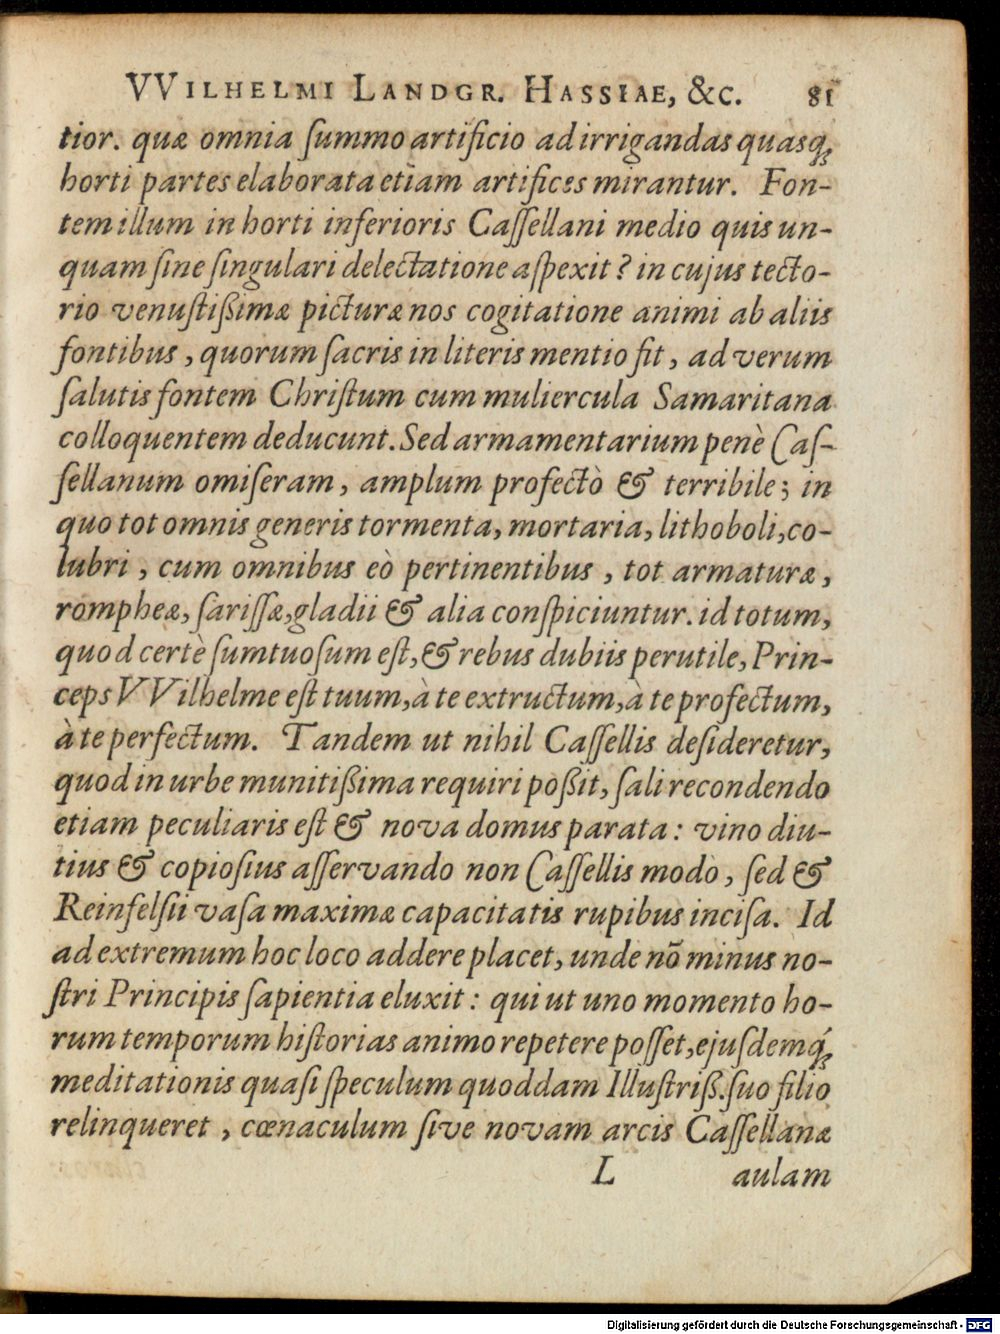 VVILHELMI LANDGR. HASSIAE, &c. 81
tior. quæ omnia ſummo artificio ad irrigandas quasq́;
horti partes elaborata etiam artifices mirantur. Fon-
tem illum in horti inferioris Caſſellani medio quis un-
quam ſine ſingulari delectatione aſpexit? in cujus tecto-
rio venuſtißimæ picturæ nos cogitatione animi ab aliis
fontibus, quorum ſacris in literis mentio fit, ad verum
ſalutis fontem Chriſtum cum muliercula Samaritana
colloquentem deducunt. Sed armamentarium penè Caſ-
ſellanum omiſeram, amplum profectò & terribile; in
quo tot omnis generis tormenta, mortaria, lithoboli, co-
lubri, cum omnibus eò pertinentibus, tot armaturæ,
rompheæ, ſariſſæ, gladii & alia conſpiciuntur. id totum,
quod certè ſumtuoſum eſt, & rebus dubiis perutile, Prin-
ceps VVilhelme eſt tuum, à te extructum, à te profectum,
à te perfectum. Tandem ut nihil Caſſellis deſideretur,
quod in urbe munitißima requiri poßit, ſali recondendo
etiam peculiaris eſt & nova domus parata: vino diu-
tius & copioſius aſſervando non Caſſellis modò, ſed &
Reinfelſii vaſa maximæ capacitatis rupibus inciſa. Id
ad extremum hoc loco addere placet, unde nō minus no-
ſtri Principis ſapientia eluxit: qui ut uno momento ho-
rum temporum hiſtorias animo repetere poſſet, ejusdemq́;
meditationis quaſi ſpeculum quoddam Illuſtriß. ſuo filio
relinqueret, cœnaculum ſive novam arcis Caſſellanæ
L aulam
Digitalisierung gefördert durch die Deutsche Forschungsgemeinschaft - DFG